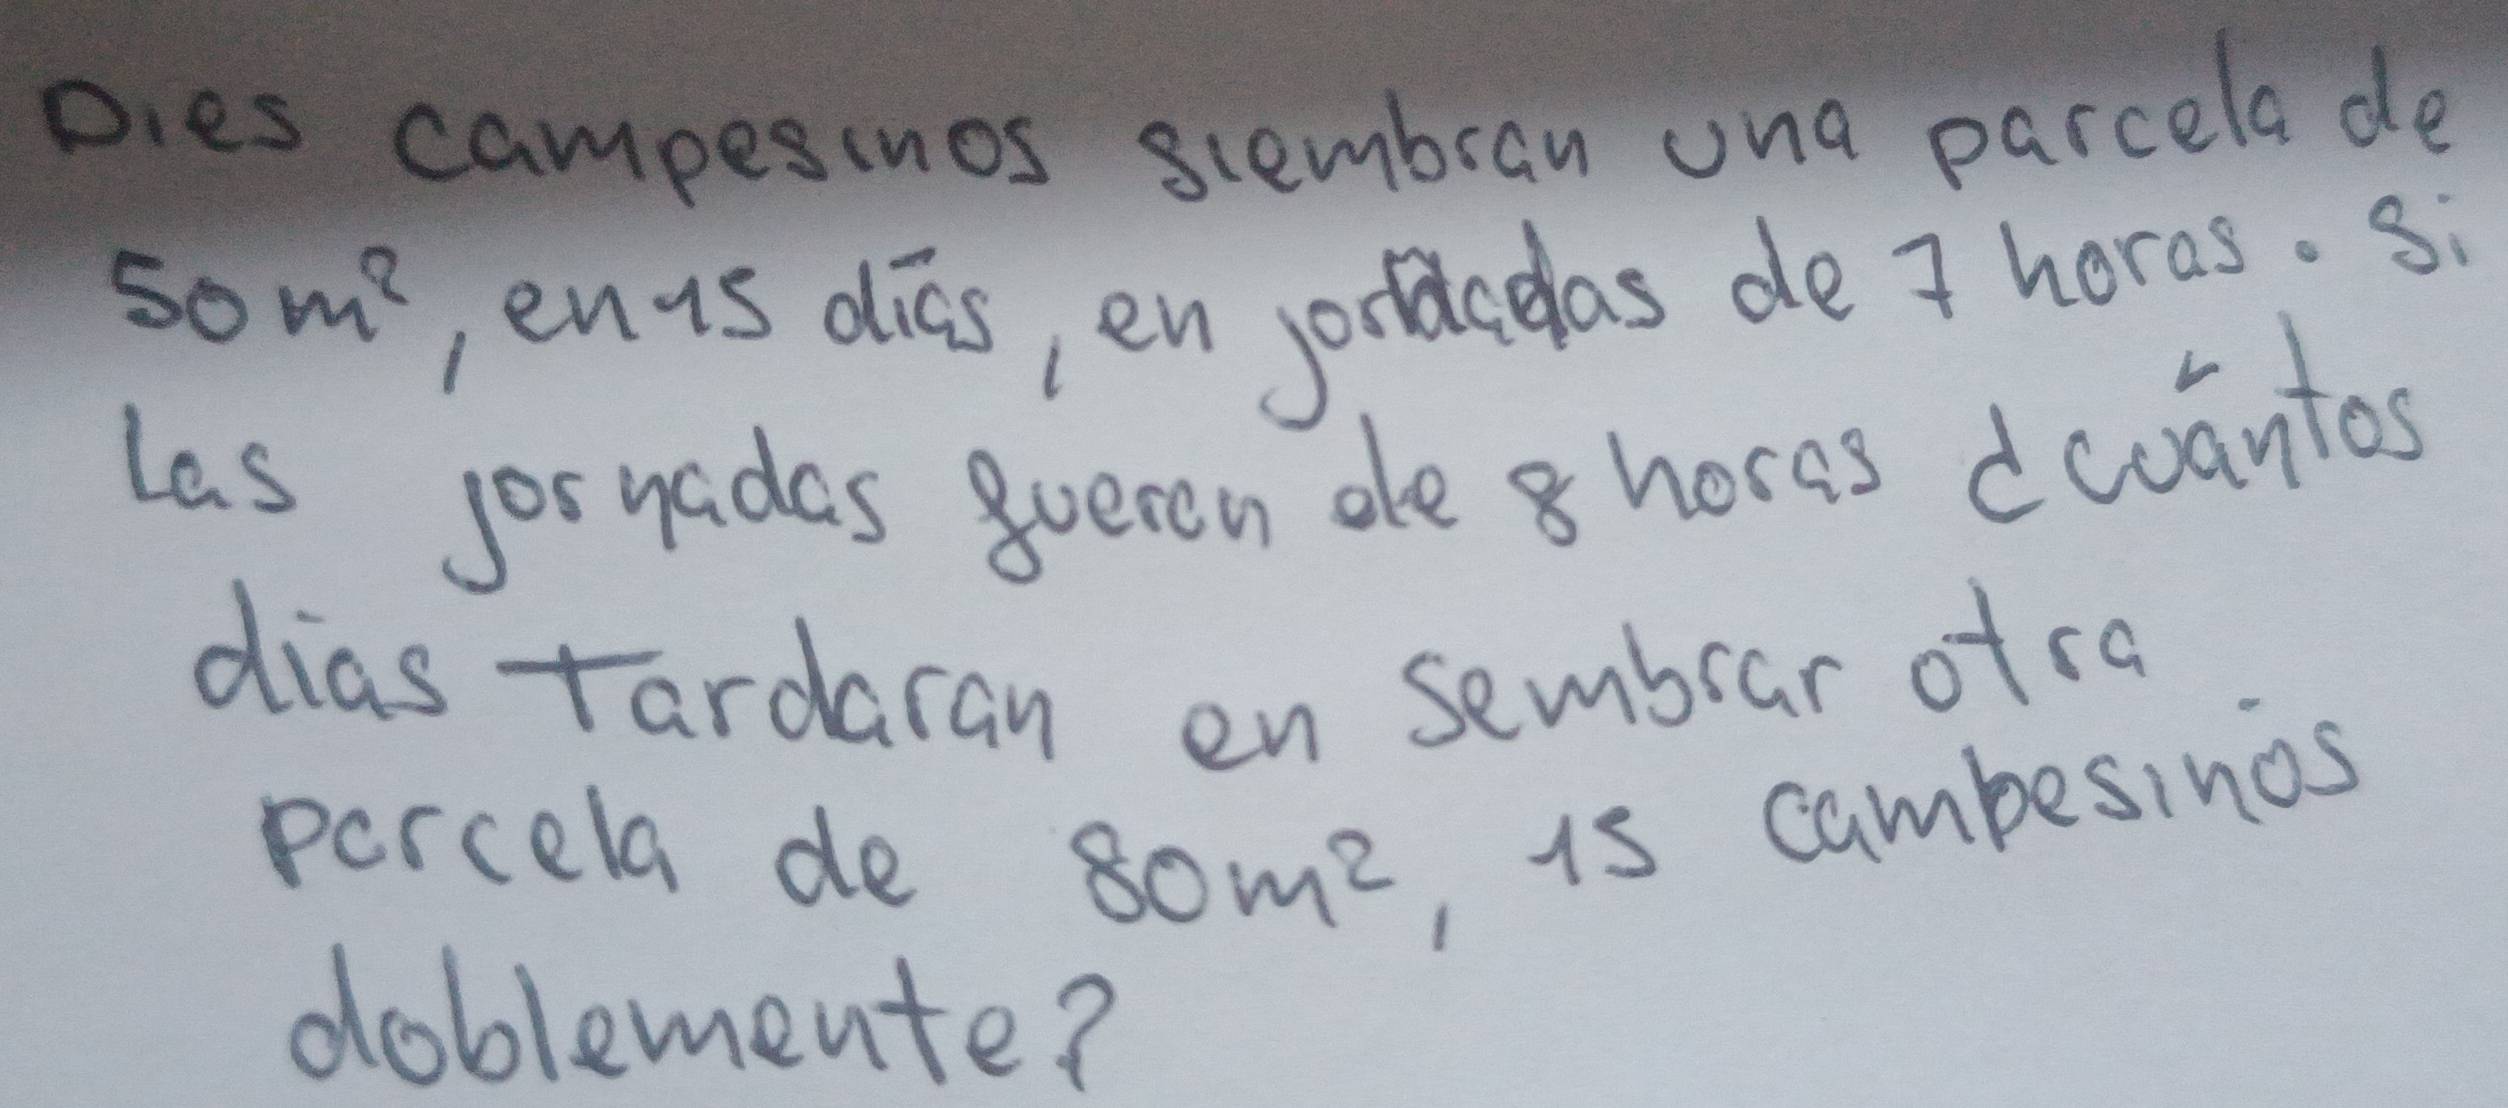 Dies campesinos siembran una parcela de
50 m², en 15 días, en jornadas de 7 horas. Si
las jornadas fueran de 8 horas ¿cuántos
dias tardaran en sembrar otra
parcela de 80m², 15 cambesinos
doblemente?